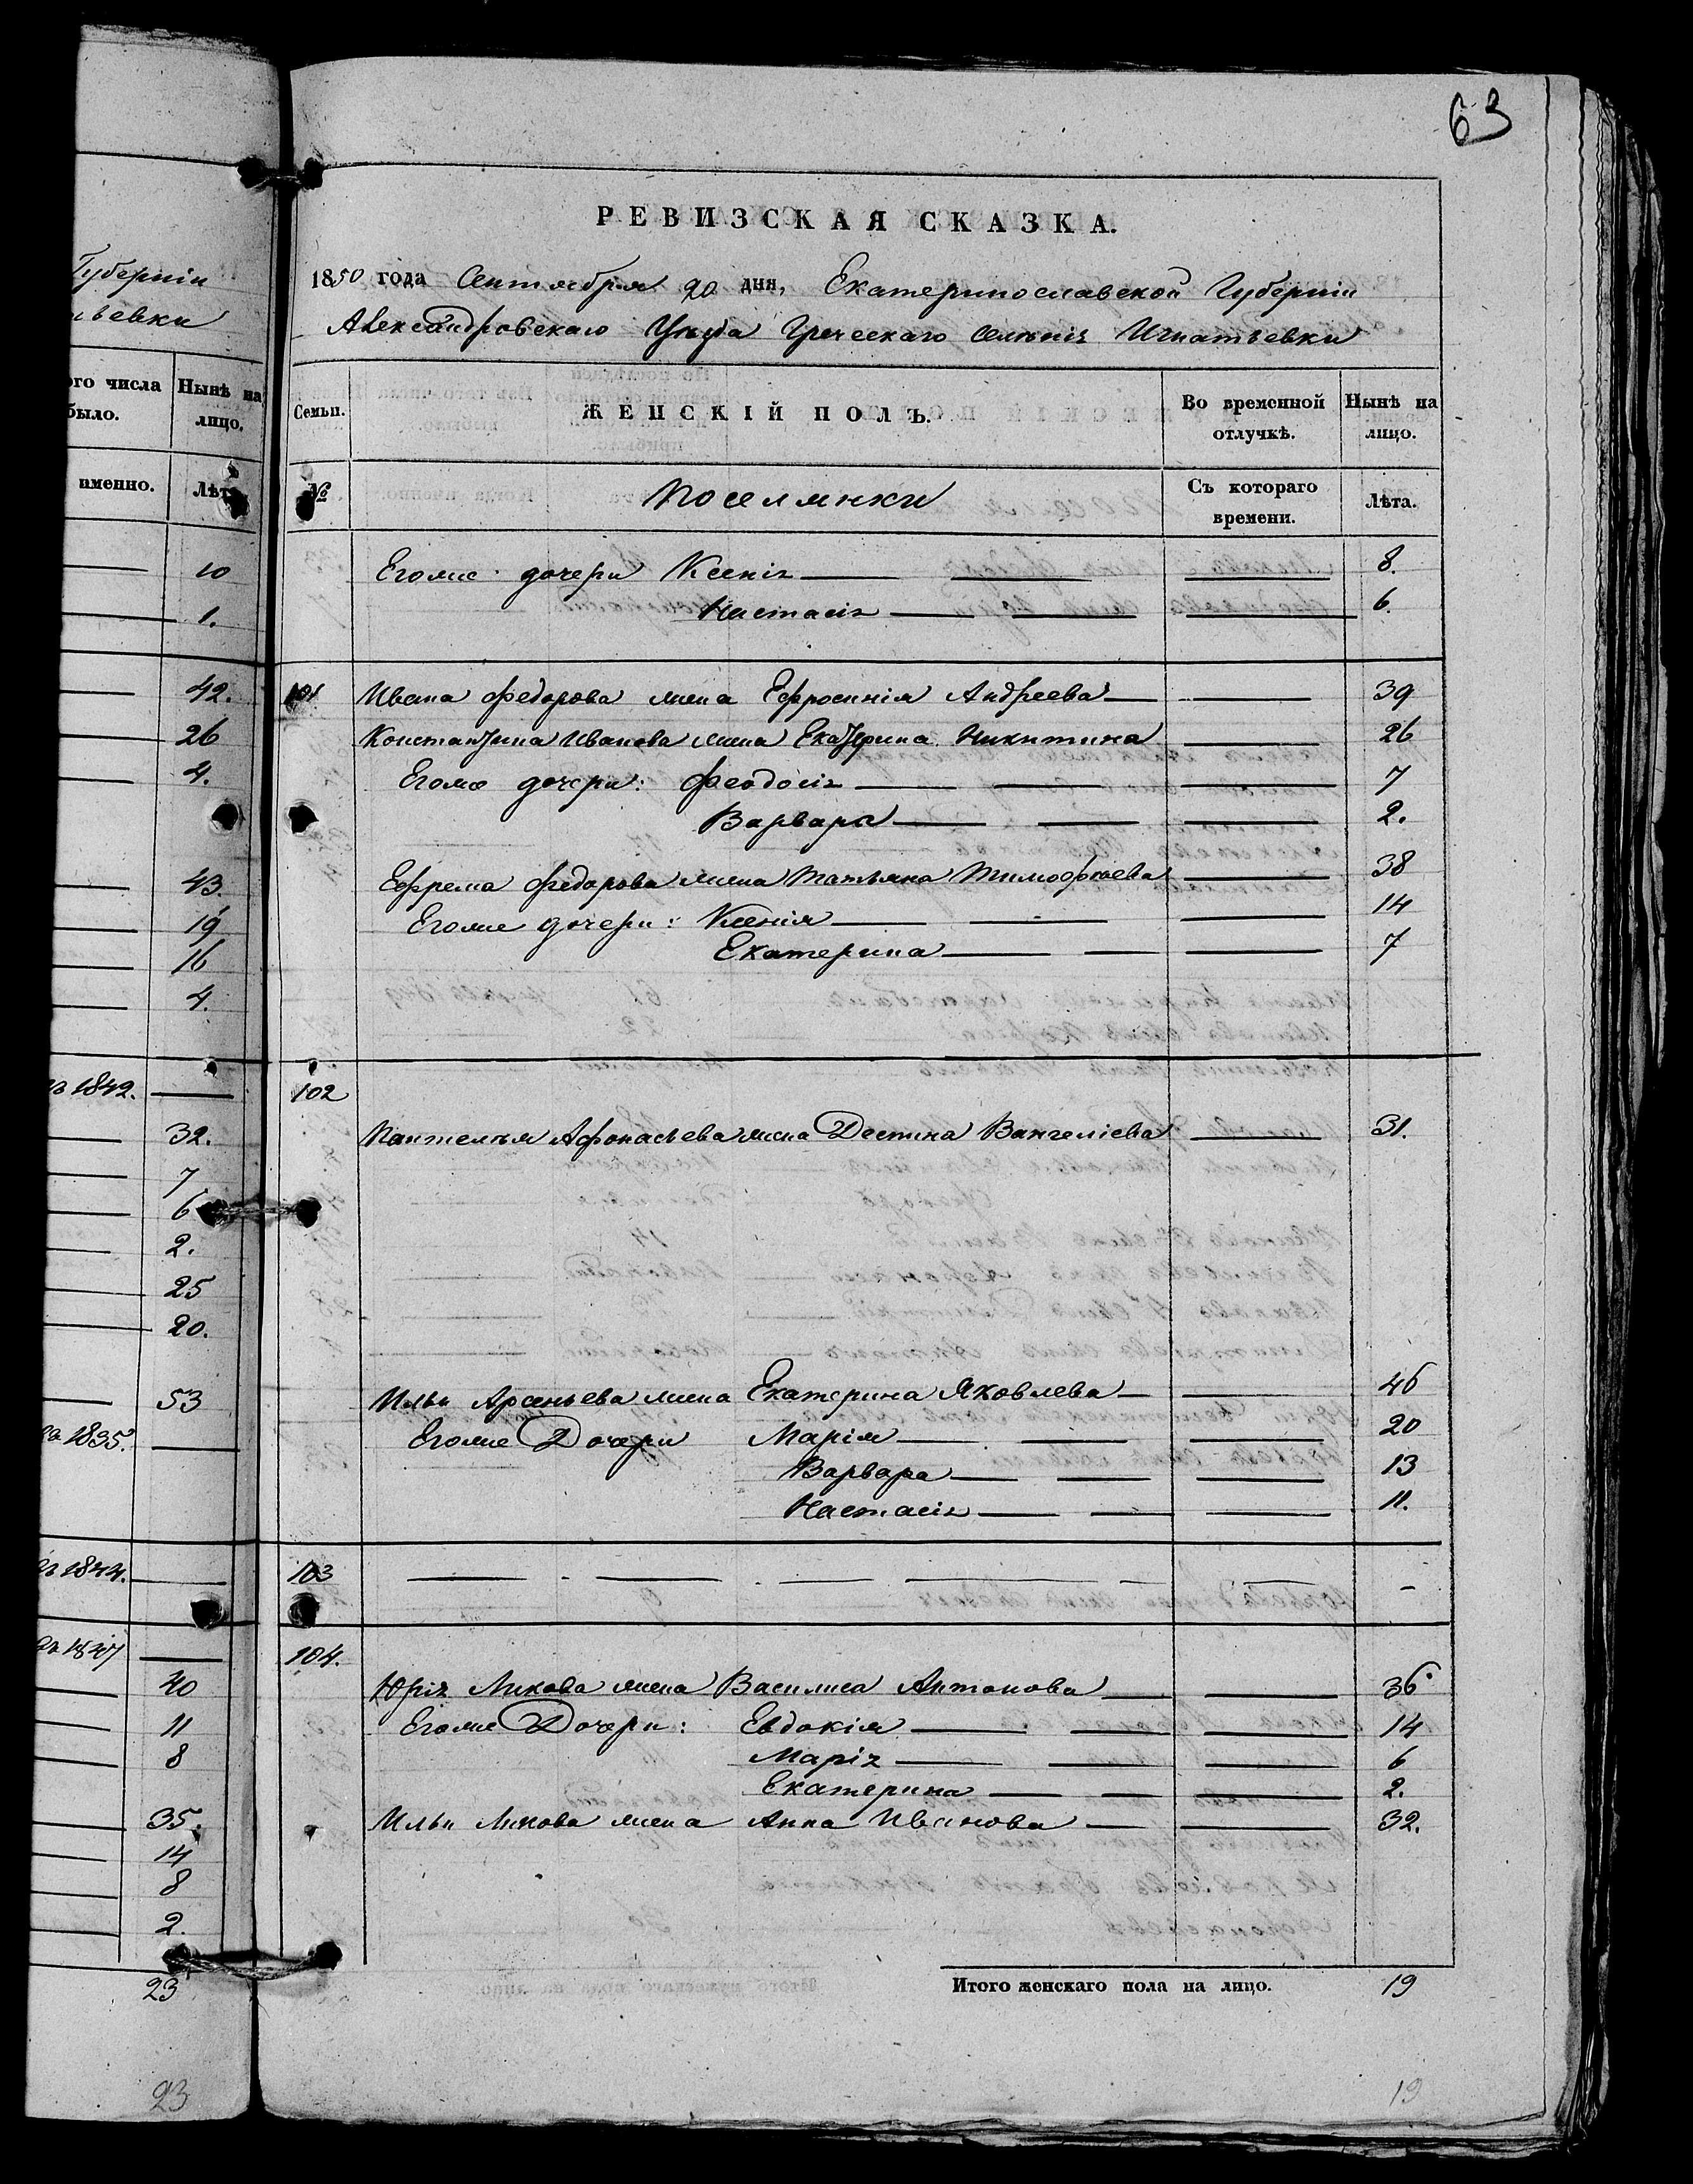 Губерніи
ьевки
ого числа
было.
Нынѣ на
лицо.
именно.
Лѣта
10
1.
42.
26
4.
43.
19
16
4.
1842.
32.
7
6
2.
25
20.
53
1835.
1844.
1847
40
11
8
35.
14
8
2.
23
23
63
РЕВИЗСКАЯ СКАЗКА.
1850 года Сентября 20 дня, Екатеринославской Губерніи
Александровскаго Уѣзда Греческаго селенія Игнатьевки
Семьи. ЖЕНСКІЙ ПОЛЪ. Во временной отлучкѣ. Нынѣ на лицо.
№ Поселянки Съ котораго времени. Лѣта.
Егоже дочери Ксенія 8.
Настасія 6.
101 Ивана Федорова жена Ефросинія Андреева 39
Константина Иванова жена Екатерина Никитина 26
Егоже дочери: Феодосія 7
Варвара 2.
Ефрема Федорова жена Татьяна Тимофѣева 38
Егоже дочери: Ксенія 14
Екатерина 7
102
Пантелѣя Афонасьева жена Деспина Вангеліева 31.
Ильи Арсеньева жена Екатерина Яковлева 46
Егоже Дочери Марія 20
Варвара 13
Настасія 11.
103
104.
Юрія Ликова жена Василиса Антонова 36
Егоже Дочери: Евдокія 14
Марія 6
Екатерина 2.
Ильи Ликова жена Анна Иванова 32.
Итого женскаго пола на лицо. 19
19